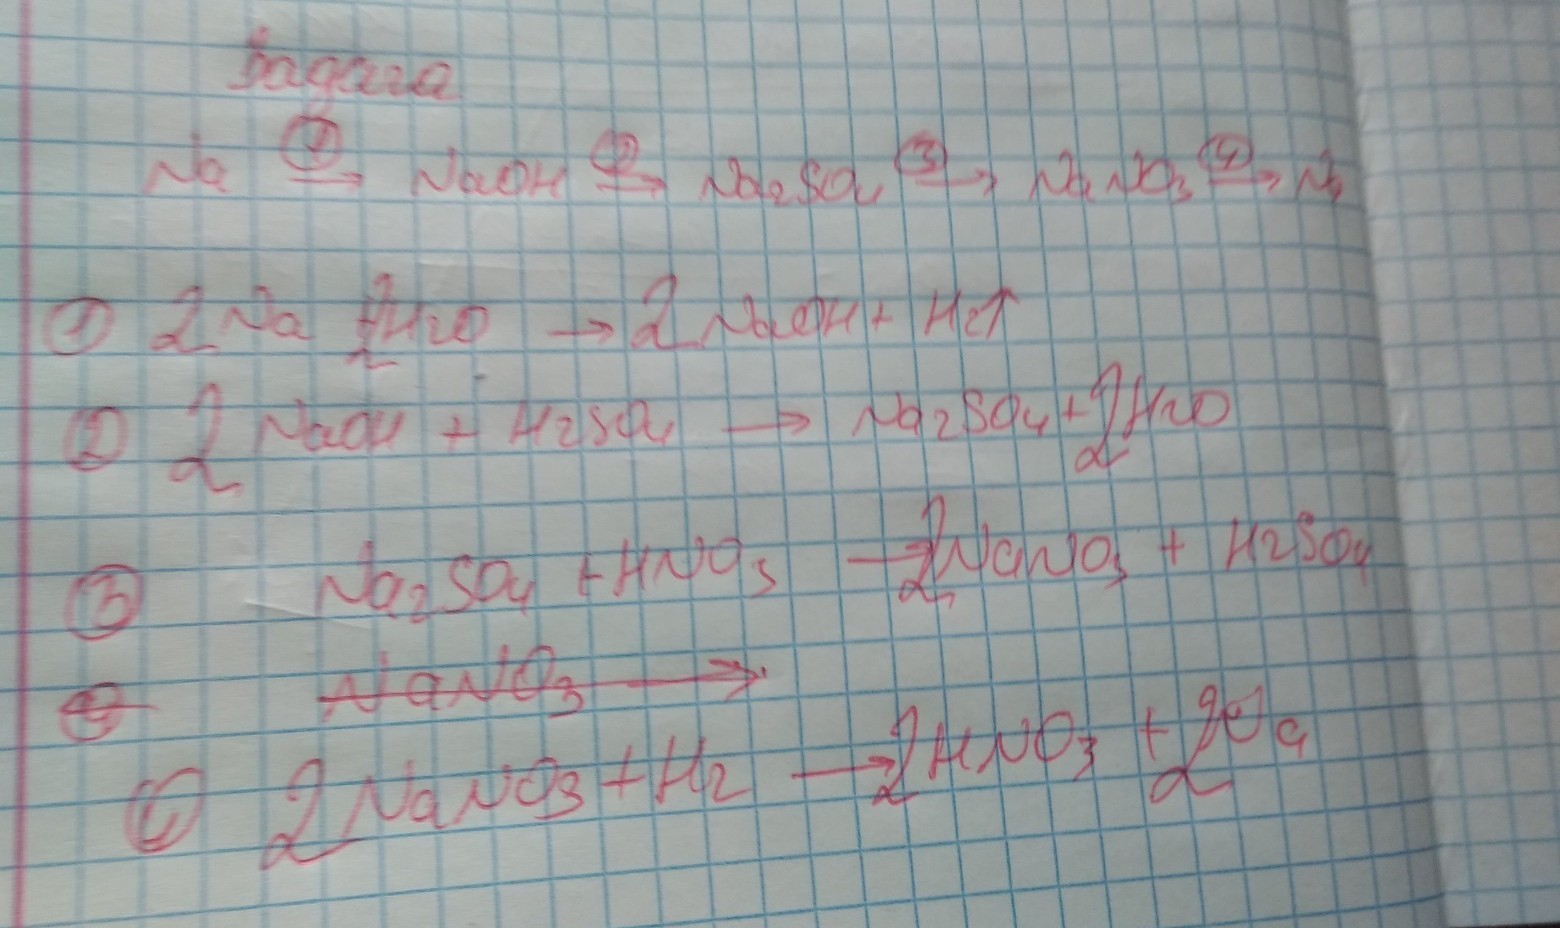 Задача
Na ①→ NaOH ②→ Na2SO4 ③→ NaNO3 ④→ Na
① 2Na + 2H2O → 2NaOH + H2↑
② 2NaOH + H2SO4 → Na2SO4 + 2H2O
③ Na2SO4 + HNO3 → 2NaNO3 + H2SO4
NaNO3 →
④ 2NaNO3 + H2 → 2HNO3 +